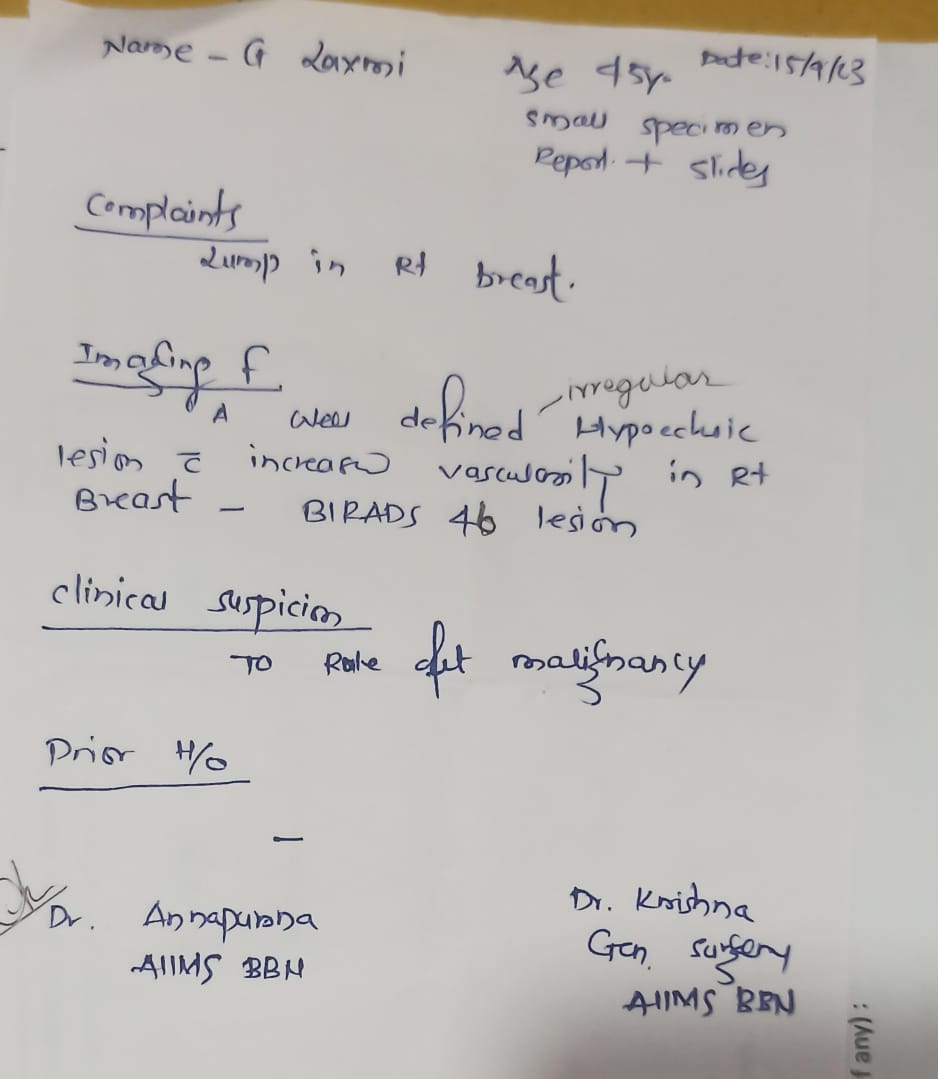 Name - G Laxmi Age 45y. Date: 15/9/23
small specimen
Report. + slides
Complaints
Lump in Rt breast.
Imaging f
irregular
A well defined Hypoechoic
lesion c̄ increased vascularity in Rt
Breast - BIRADS 4b lesion
clinical suspicion
TO Rule out malignancy
Prior H/O
-
Dr. Annapurna
AIIMS BBN
Dr. Krishna
Gen. surgery
AIIMS BBN
f any) :